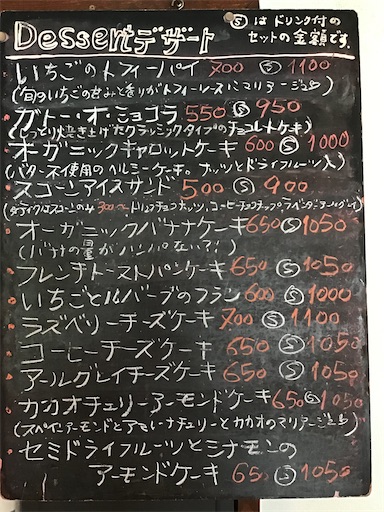 Dessert デザート
Ⓢ は ドリンク付の
セットの金額です。
いちごのトフィーパイ 700 Ⓢ 1100
(旬のいちごの甘みと香りがトフィーソースにマリアージュ)
ガトー・オ・ショコラ 550 Ⓢ 950
(しっとり焼き上げたクラシックタイプのチョコレートケーキ)
オーガニックキャロットケーキ 600 Ⓢ 1000
(バター不使用のヘルシーケーキ。ナッツとドライフルーツ入)
スコーンアイスサンド 500 Ⓢ 900
(テイクはスコーンのみ 300〜 トリプルチョコナッツ、コーヒーチョコチップ
オーガニックバナナケーキ 650 Ⓢ 1050
(バナナの量がハンパない?!)
フレンチトーストパンケーキ 650 Ⓢ 1050
いちごとルバーブのフラン 600 Ⓢ 1000
ラズベリーチーズケーキ 700 Ⓢ 1100
コーヒーチーズケーキ 650 Ⓢ 1050
アールグレイチーズケーキ 650 Ⓢ 1050
カカオチェリーアーモンドケーキ 650 Ⓢ 1050
(スペインアーモンドとアマレーナチェリーとカカオのマリアージュ)
セミドライフルーツとシナモンの
アーモンドケーキ 650 Ⓢ 1050